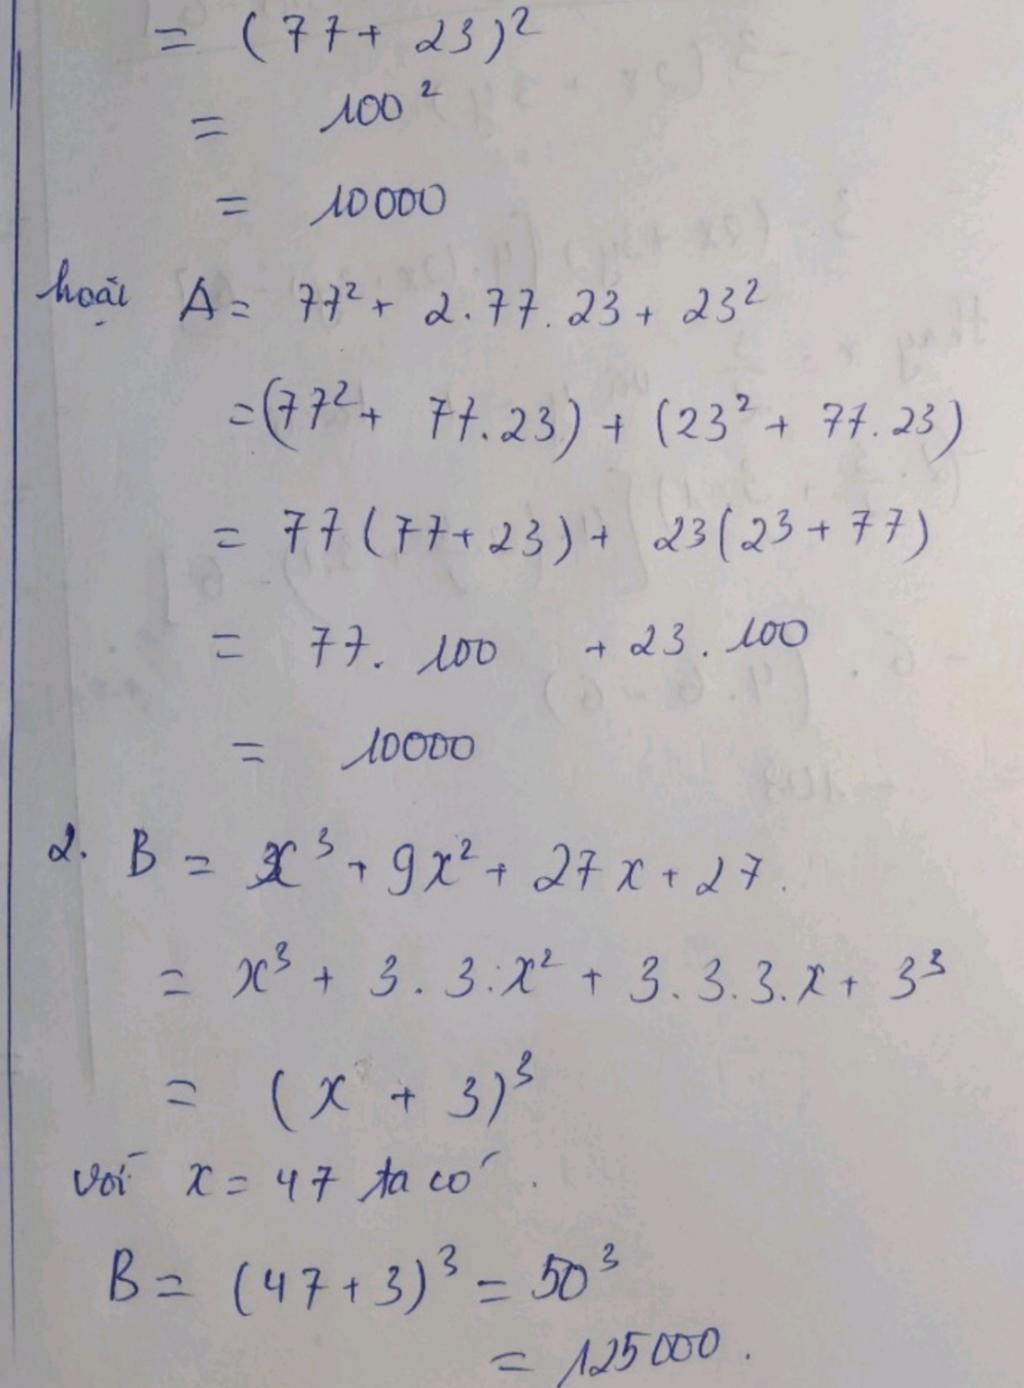 = (77 + 23)²
= 100²
= 10000
hoặc A = 77² + 2.77.23 + 23²
= (77² + 77.23) + (23² + 77.23)
= 77(77+23) + 23(23+77)
= 77.100 + 23.100
= 10000
2. B = x³ + 9x² + 27x + 27.
= x³ + 3.3.x² + 3.3.3.x + 3³
= (x + 3)³
với x = 47 ta có.
B = (47+3)³ = 50³
= 125000.